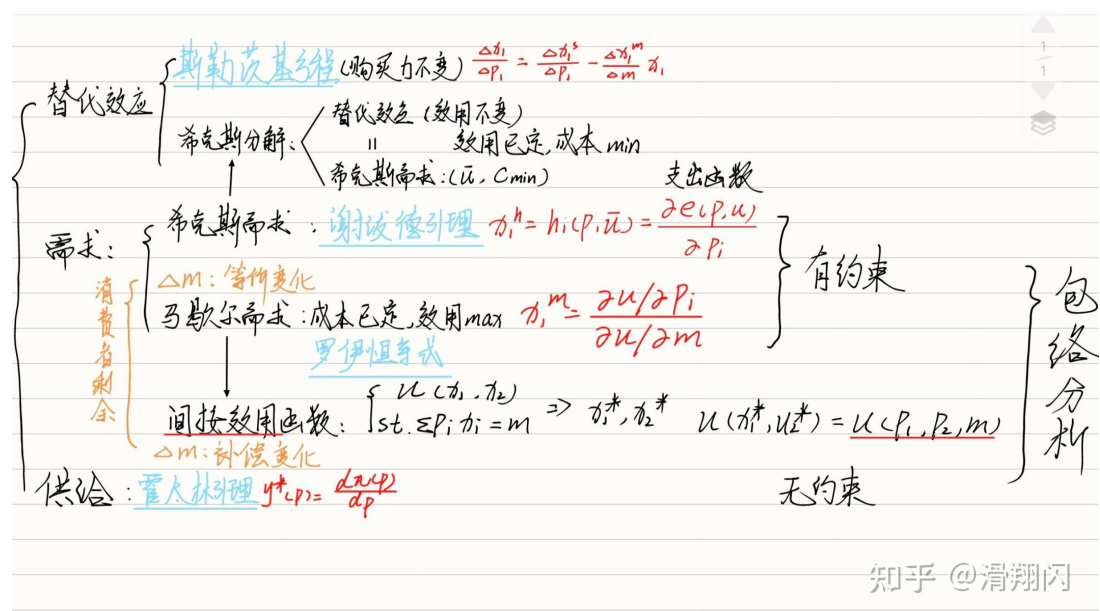 斯勒茨基方程(购买力不变) Δx₁/Δp₁ = Δx₁ˢ/Δp₁ - Δx₁ᵐ/Δm x₁
替代效应
替代效应(效用不变)
希克斯分解:
= 效用已定,成本min
希克斯需求:(ū, Cmin)
支出函数
希克斯需求: 谢泼德引理 x₁ʰ = hᵢ(p,ū) = ∂e(p,u)/∂pᵢ
需求:
有约束
Δm: 等价变化
消费者剩余
马歇尔需求:成本已定,效用max x₁ᵐ = ∂u/∂pᵢ / ∂u/∂m
罗伊恒等式
包络分析
间接效用函数: { u(x₁,x₂) st. Σpᵢxᵢ=m => x₁*,x₂* u(x₁*,u₂*) = u(p₁,p₂,m)
Δm: 补偿变化
供给: 霍太林引理 y*(p) = dπ(p)/dp
无约束
1
1
知乎 @滑翔闪